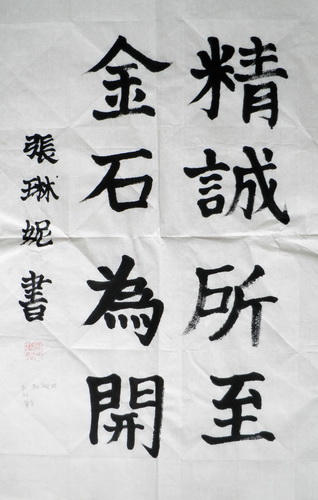 精誠所至
金石為開
張琳妮書